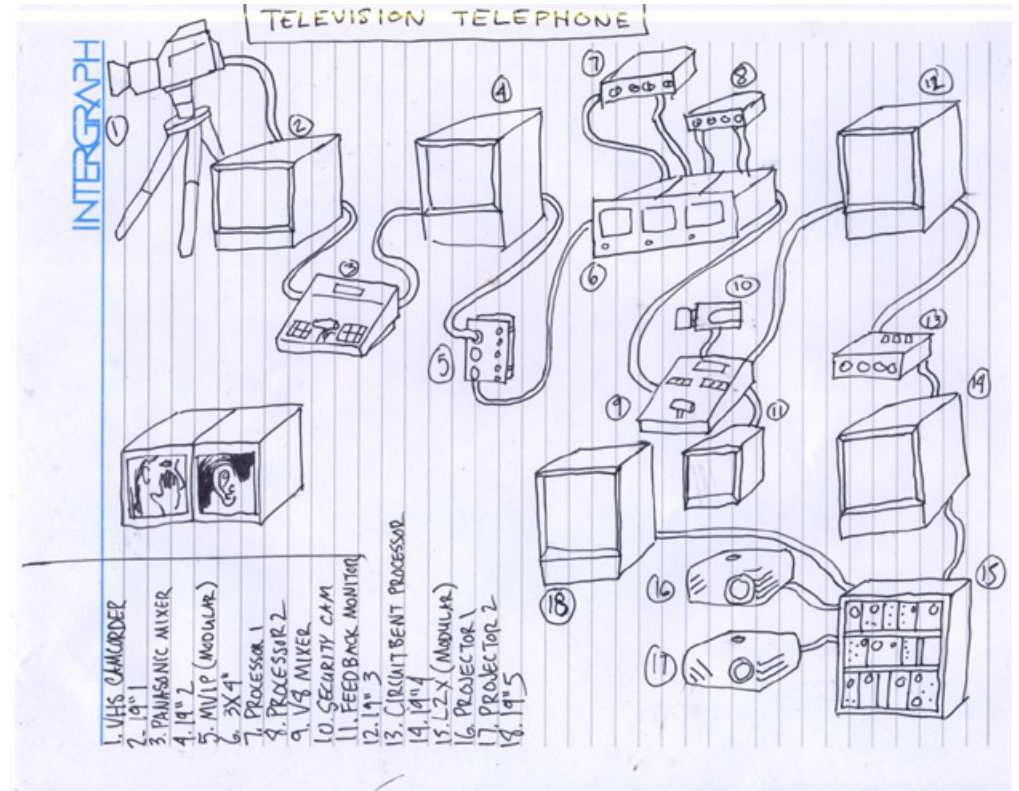 TELEVISION TELEPHONE
INTERGRAPH
1
2
3
4
5
6
7
8
9
10
11
12
13
14
15
16
17
18
1. VHS CAMCORDER
2. 19" 1
3. PANASONIC MIXER
4. 19" 2
5. MVIP (MODULAR)
6. 3X4"
7. PROCESSOR 1
8. PROCESSOR 2
9. V8 MIXER
10. SECURITY CAM
11. FEEDBACK MONITOR
12. 19" 3
13. CIRCUIT BENT PROCESSOR
14. 19" 4
15. LZX (MODULAR)
16. PROJECTOR 1
17. PROJECTOR 2
18. 19" 5